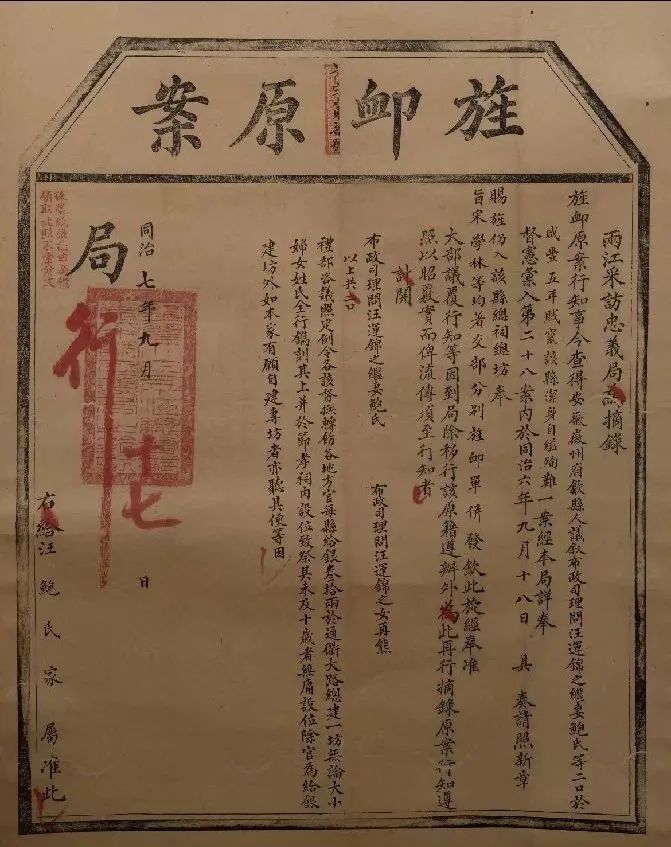 旌卹原案
兩江采訪忠義局為摘錄
旌卹原案行知事今查得安徽徽州府歙縣人議叙布政司理問汪運錦之繼妻鮑氏等二口於
咸豐五年賊竄該縣潔身自縊殉難一案經本局詳奉
督憲彙入第二十八案內於同治六年九月十八日具奏請照新章
賜旌仍入該縣總祠總坊奉
旨宋學林等均著交部分別旌卹單併發欽此旋經奉准
大部議覆行知等因到局除移行該原籍遵辦外為此再行摘錄原案行知遵
照以昭覈實而俾流傳須至行知者
計開
布政司理問汪運錦之繼妻鮑氏 布政司理問汪運錦之女再熊
以上共二口
禮部咨議照定例令各該督撫轉飭各地方官每縣給銀叁拾兩於通衢大路總建一坊無論大小
婦女姓氏全行鐫刻其上並於節孝祠內設位致祭其未及十歲者無庸設位除官為給銀
建坊外如本家有願自建專坊者亦聽其便等因
右給汪鮑氏家屬准此
同治七年九月十七日
局
行